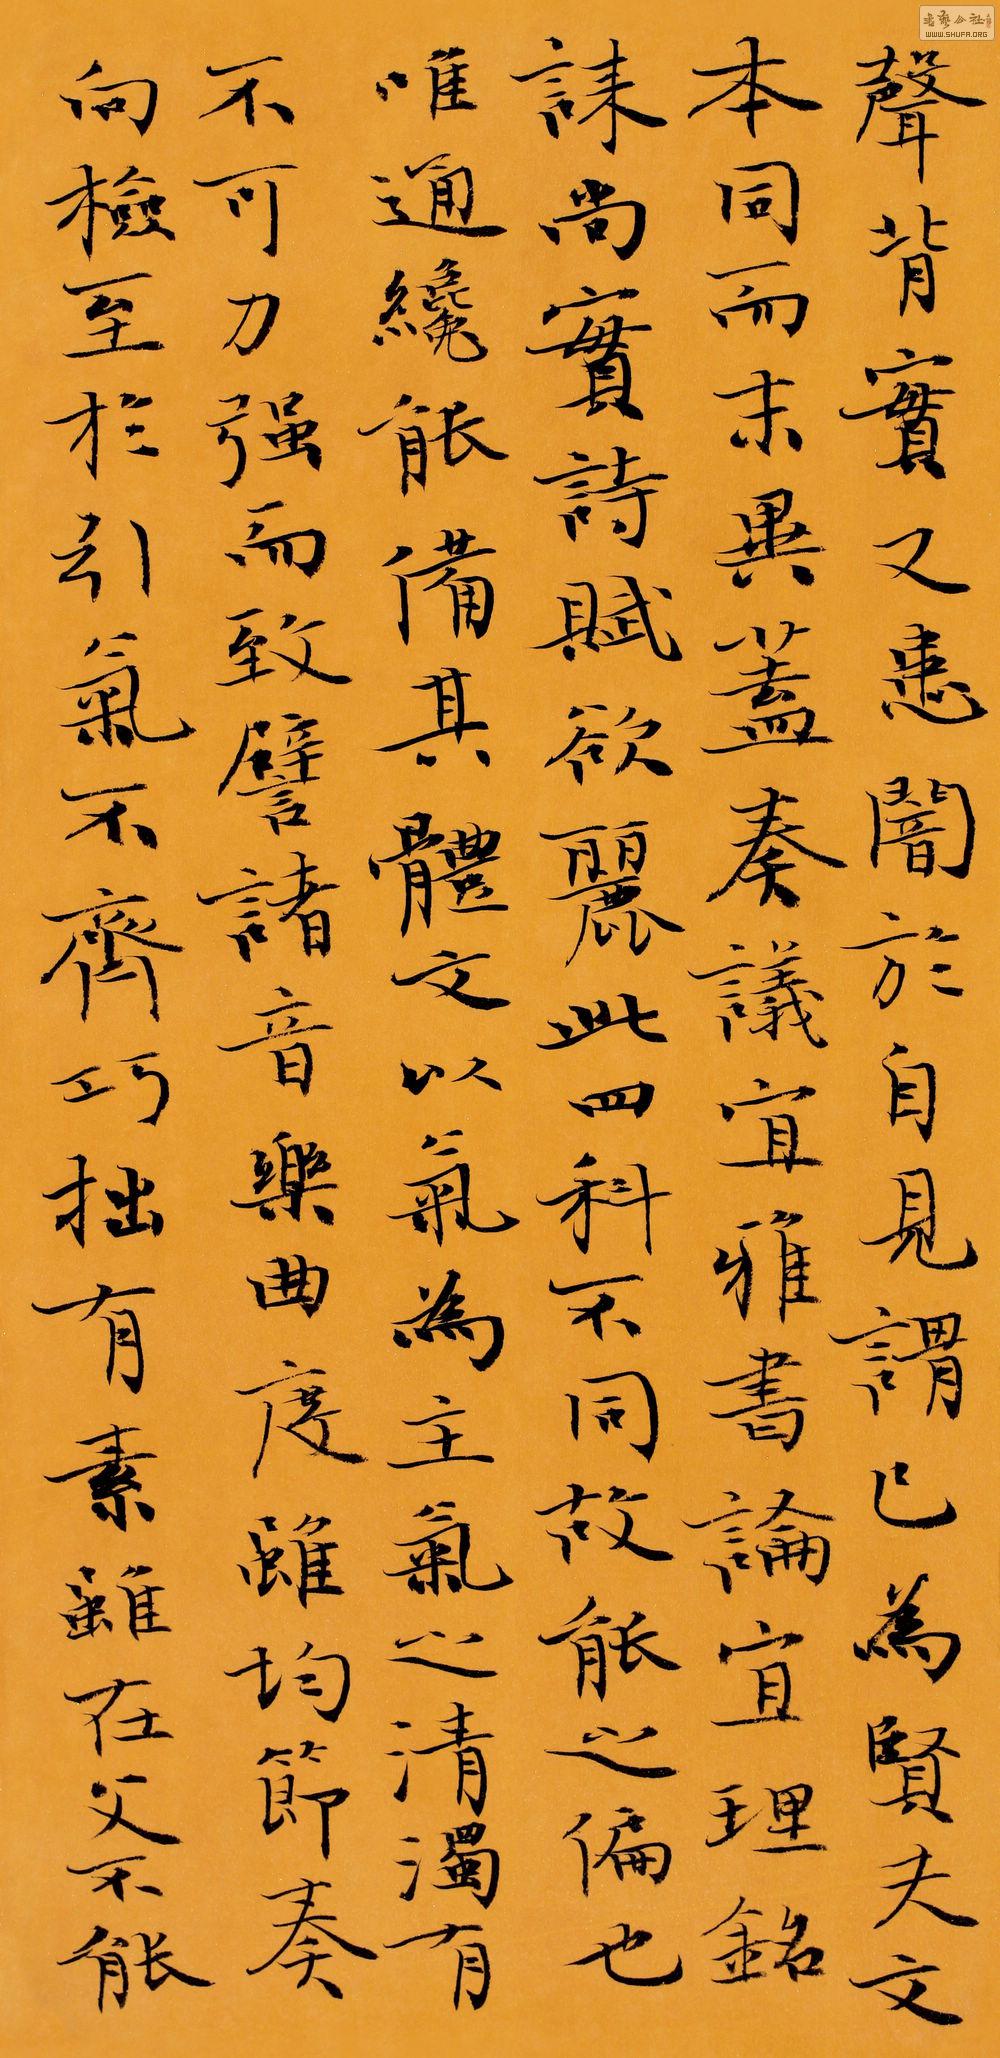 聲背實又患闇於自見謂已為賢夫文
本同而末異蓋奏議宜雅書論宜理銘
誄尚實詩賦欲麗此四科不同故能之偏也
唯通纔能備其體文以氣為主氣之清濁有
不可力强而致譬諸音樂曲度雖均節奏
向檢至於引氣不齊巧拙有素雖在父不能
書藝公社
WWW.SHUFA.ORG